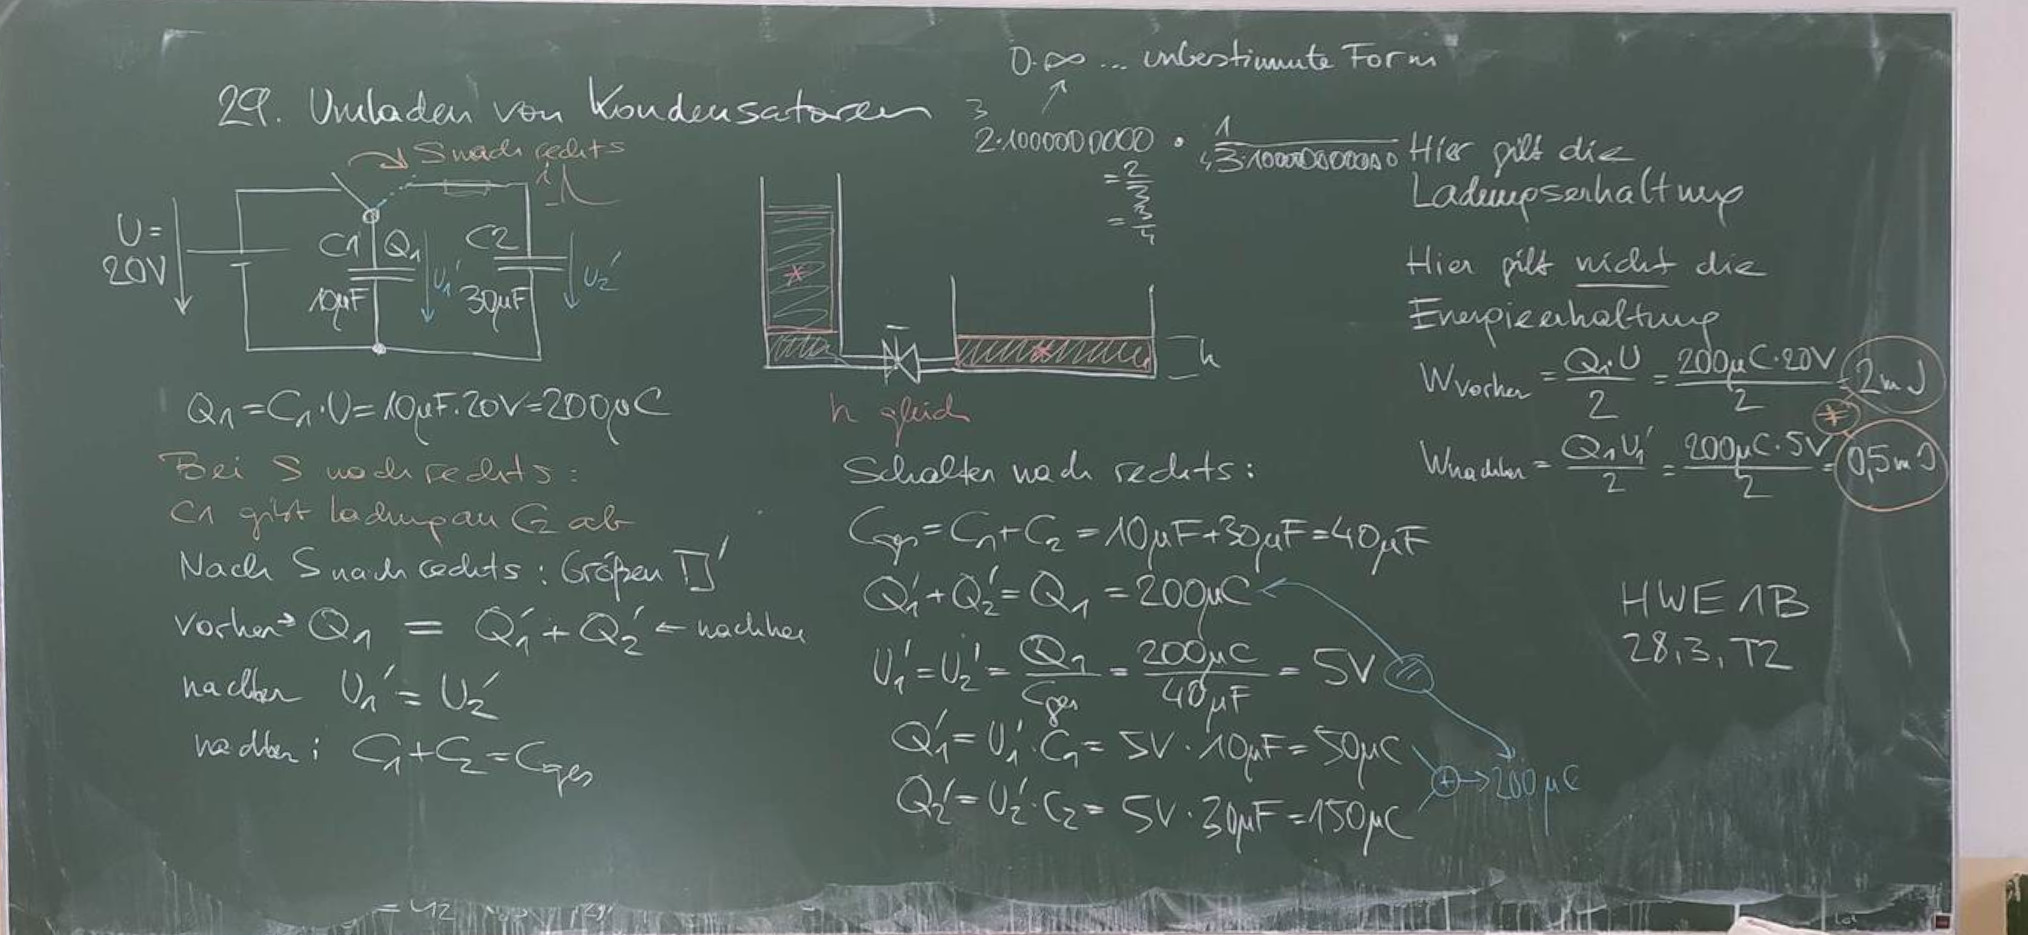 0·∞ ... unbestimmte Form
29. Umladen von Kondensatoren
S nach rechts
U =
20V
C1
Q₁
10µF
U₁'
C2
30µF
U₂'
Q₁ = C₁·U = 10µF·20V = 200µC
Bei S nach rechts:
C1 gibt Ladung an C2 ab
Nach S nach rechts: Größen □'
vorher → Q₁ = Q₁' + Q₂' ← nachher
nachher U₁' = U₂'
nachher: C₁ + C₂ = Cges
3
2·1000000000 · 1/3·10000000000
= 2/3
= 3/4
h
h gleich
Schalten nach rechts:
Cges = C₁ + C₂ = 10µF + 30µF = 40µF
Q₁' + Q₂' = Q₁ = 200µC
U₁' = U₂' = Q₁/Cges = 200µC/40µF = 5V
Q₁' = U₁'·C₁ = 5V·10µF = 50µC
Q₂' = U₂'·C₂ = 5V·30µF = 150µC
+ → 200µC
Hier gilt die
Ladungserhaltung
Hier gilt nicht die
Energieerhaltung
Wvorher = Q₁·U/2 = 200µC·20V/2 = 2mJ
≠
Wnachher = Q₁U₁'/2 = 200µC·5V/2 = 0,5mJ
HWE 1B
28,3, T2